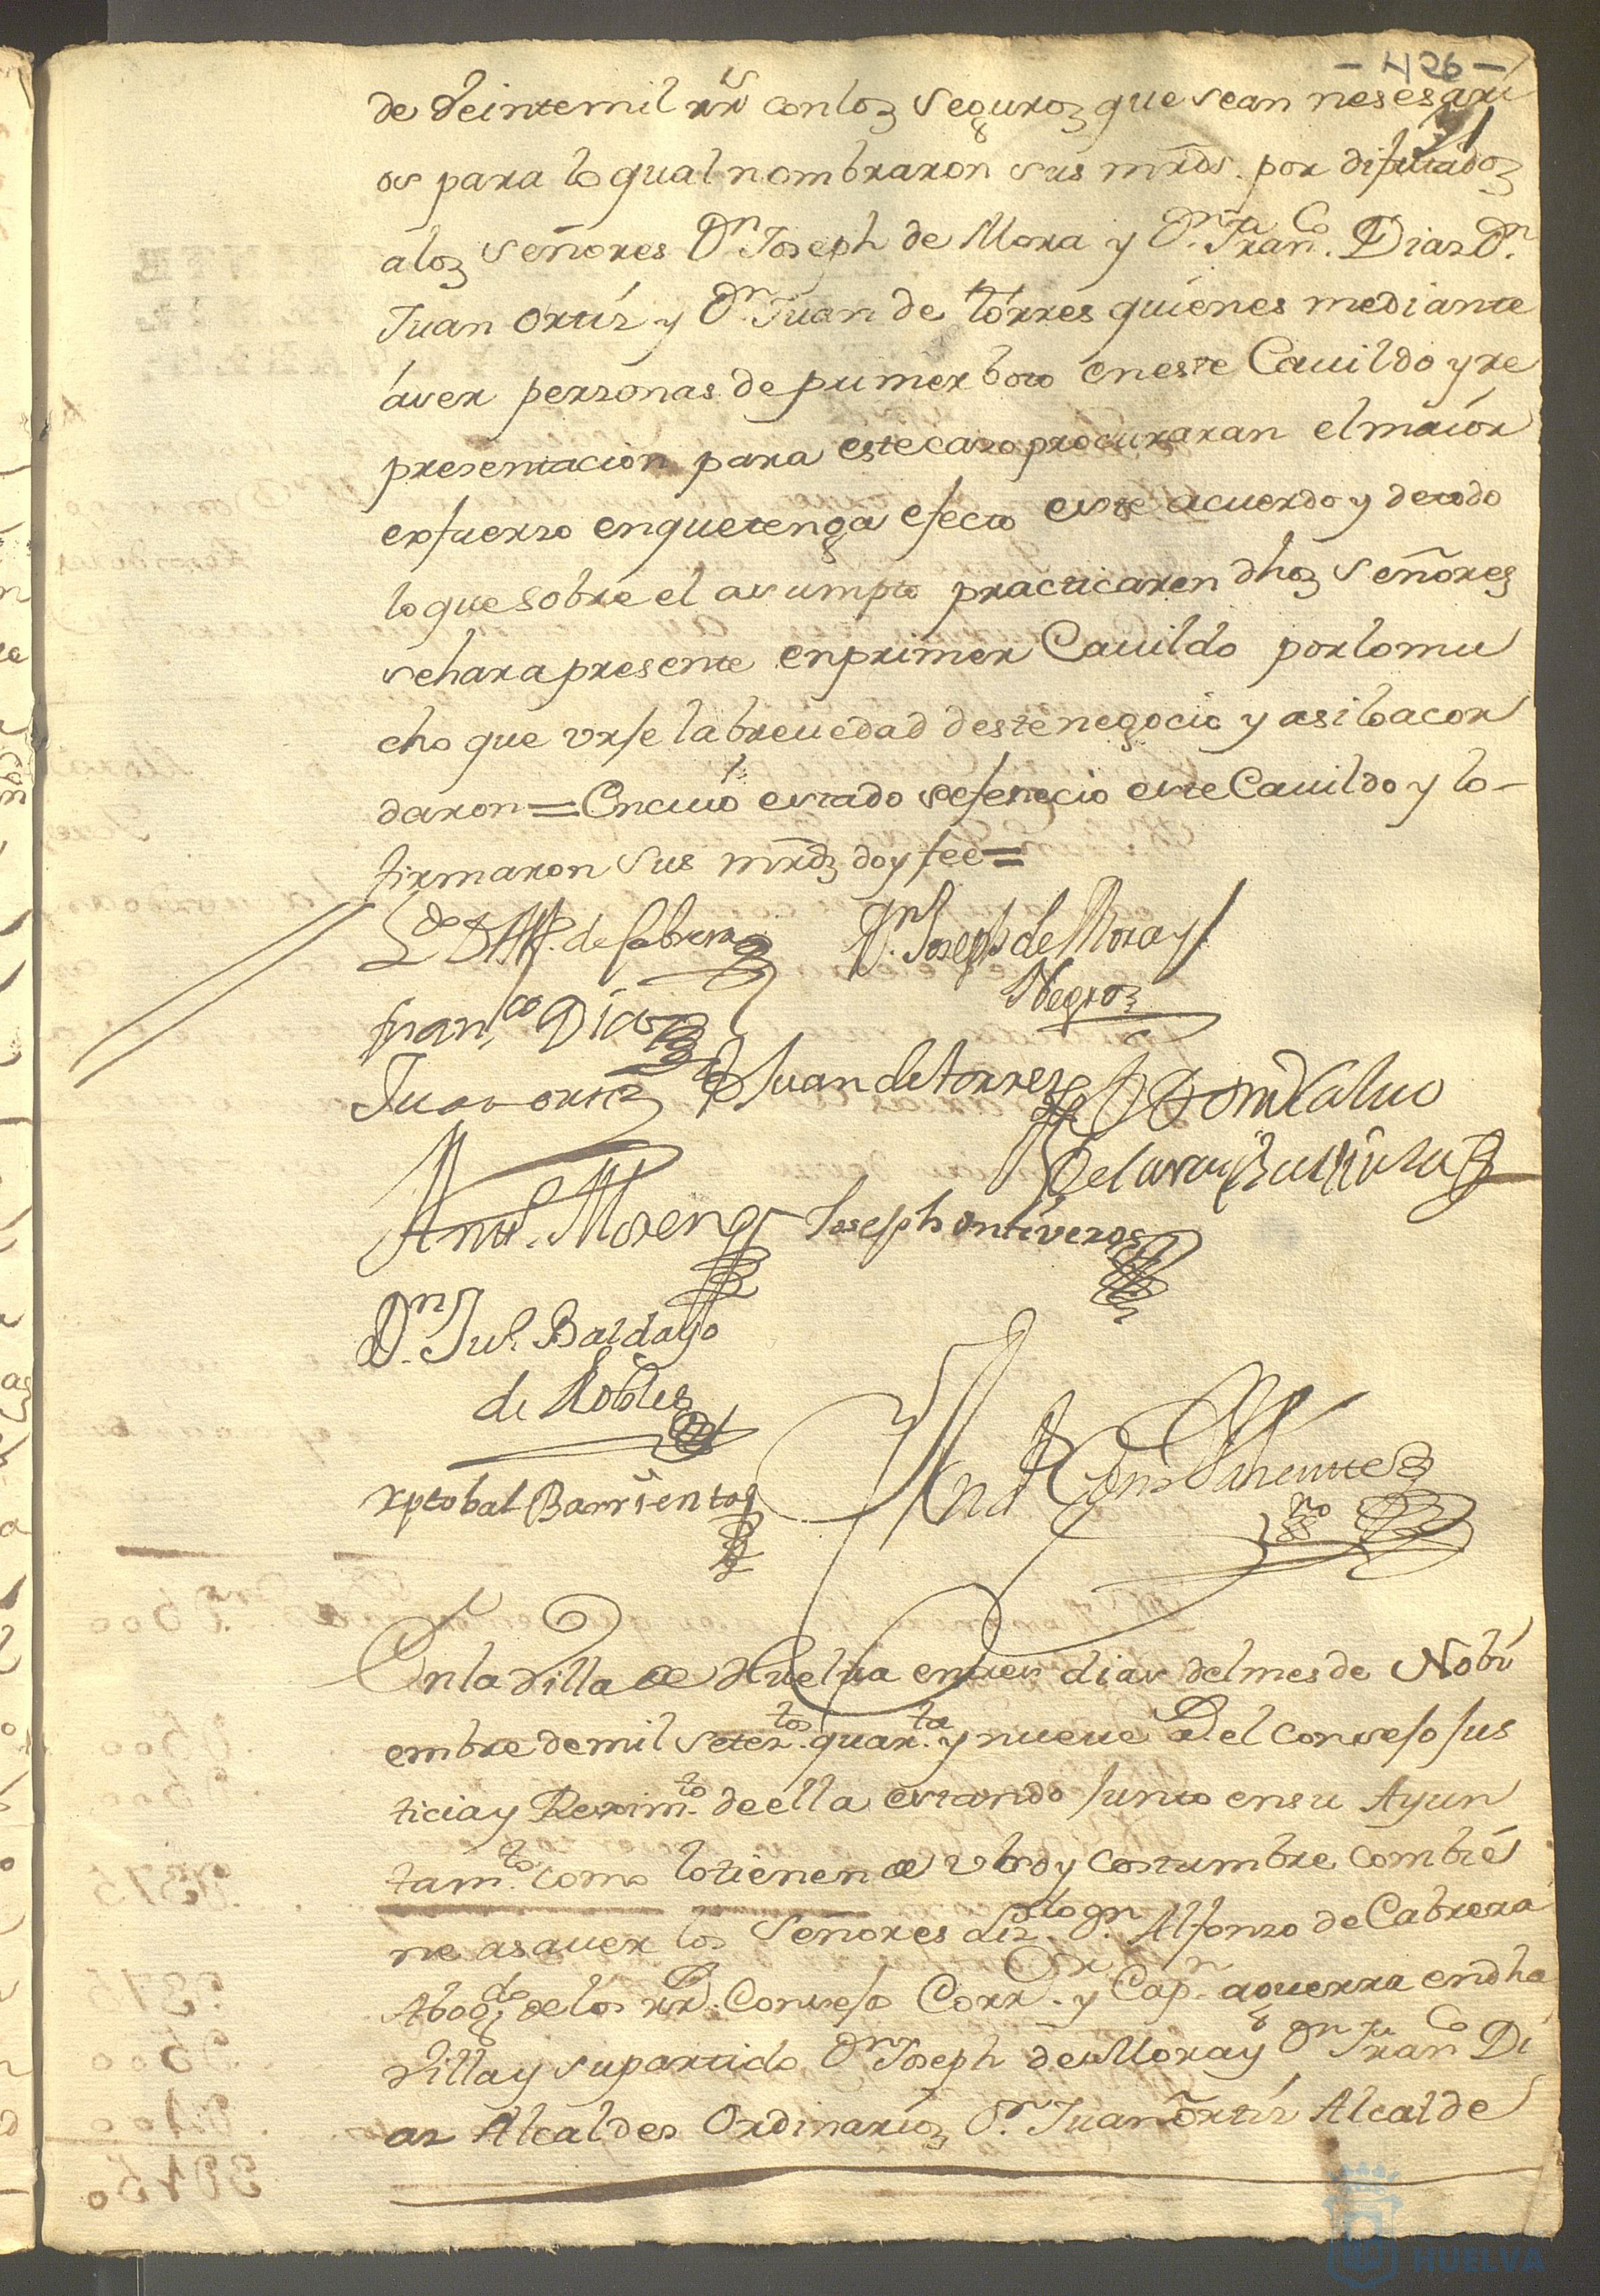 - 426 -
de Veinte mil rrs con los seguros que sean nesesari
31
os para lo qual nombraron sus mrds. por diputados
a los señores Dn. Joseph de Mora y Dn. Franco. Dias Dn.
Juan Ortíz y Dn. Juan de torres quienes mediante
áver personas de primer boto en este Cavildo y re
presentacion para este caso procuraran el maior
esfuerso en que tenga efecto este acuerdo y de todo
lo que sobre el asumpto practicaren dhos señores
se hara presente en primer Cavildo por lo mu
cho que urje la brevedad deste negocio y asi lo acor
daron = En cuio estado se fenecio este Cavildo y lo -
firmaron sus mrds doy fee =
Ldo D Alfo. de Cabrera
Dn. Joseph de Mora y
Negros
Franco Dias
Juan ortiz
D Juan de torres
D Domo Calvo
Anto. Moreno
Joseph ontiveros
Dn. Jul. Baldayo
de Robles
xptobal Barrientos
En la Villa de Huelva en tres dias del mes de Nobi
embre de mil setestos. quarta. y nueve El consejo jus
ticia y Reximto. de ella estando junto en su Ayun
tamto. como lo tienen de Uso y costumbre combie
ne asaver los Señores Lizdo. Dn. Alfonso de Cabrera
Abogdo de los rrs. Consejos Corror. y Capn. a guerra en dha
Villa y su partido Dn. Joseph de Mora y Dn. Franco Di
as Alcaldes Ordinarios Dn. Juan Ortíz Alcalde
HUELVA